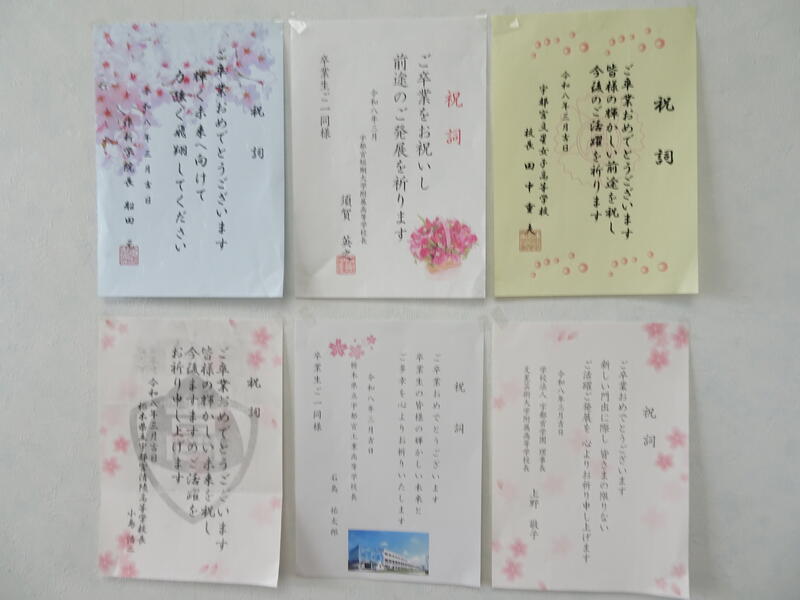 祝詞
ご卒業おめでとうございます
輝く未来へ向けて
力強く飛翔してください
令和八年三月吉日
学院長 船田
祝詞
ご卒業をお祝いし
前途のご発展を祈ります
令和八年三月
宇都宮短期大学附属高等学校長
須賀 英之
卒業生ご一同様
祝詞
ご卒業おめでとうございます
皆様の輝かしい前途を祝し
今後のご活躍を祈ります
令和八年三月吉日
宇都宮文星女子高等学校
校長 田中
祝詞
ご卒業おめでとうございます
皆様の輝かしい未来を祝し
今後ますますのご活躍を
お祈り申し上げます
令和八年三月吉日
栃木県立宇都宮清陵高等学校長
小島 浩
祝詞
ご卒業おめでとうございます
卒業生の皆様の輝かしい未来と
ご多幸を心よりお祈りいたします
令和八年三月吉日
栃木県立宇都宮工業高等学校長
石島 祐太郎
卒業生ご一同様
祝詞
ご卒業おめでとうございます
新しい門出に際し 皆さまの限りない
ご活躍ご発展を 心よりお祈り申し上げます
令和八年三月吉日
学校法人 宇都宮学園 理事長
文星芸術大学附属高等学校長
上野